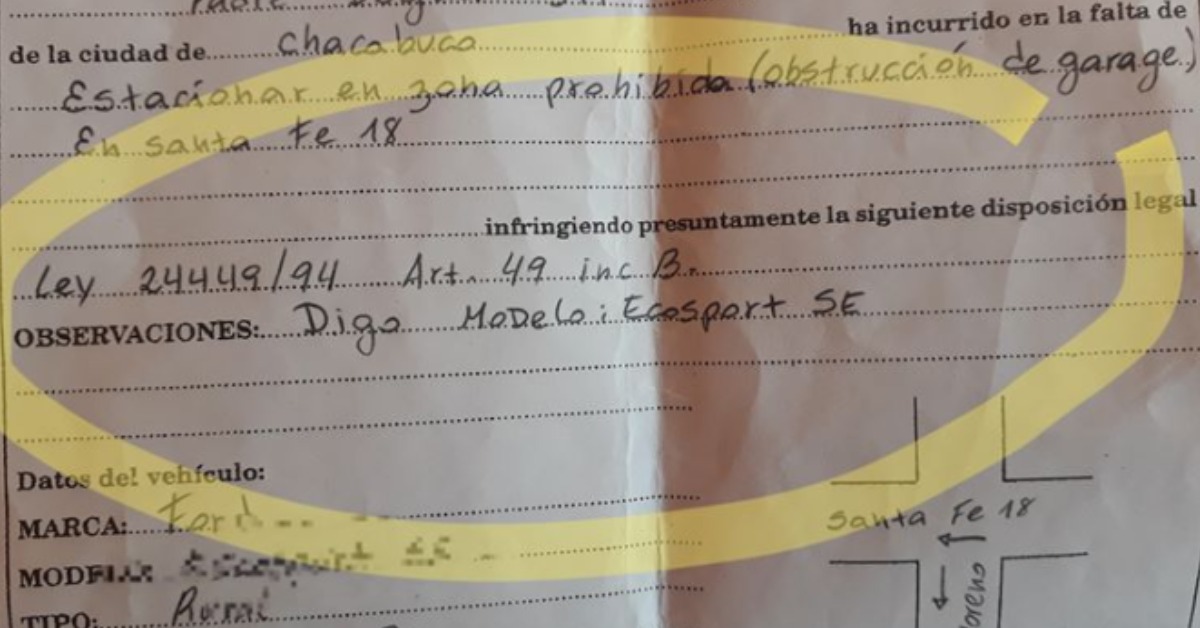 de la ciudad de Chacabuco ha incurrido en la falta de
Estacionar en zona prohibida (obstrucción de garage)
En santa Fe 18
infringiendo presuntamente la siguiente disposición legal
Ley 24449/94 Art. 49 inc B.
OBSERVACIONES: Digo Modelo: Ecosport SE
Datos del vehículo:
MARCA: Ford
Santa Fe 18
TIPO: Rural